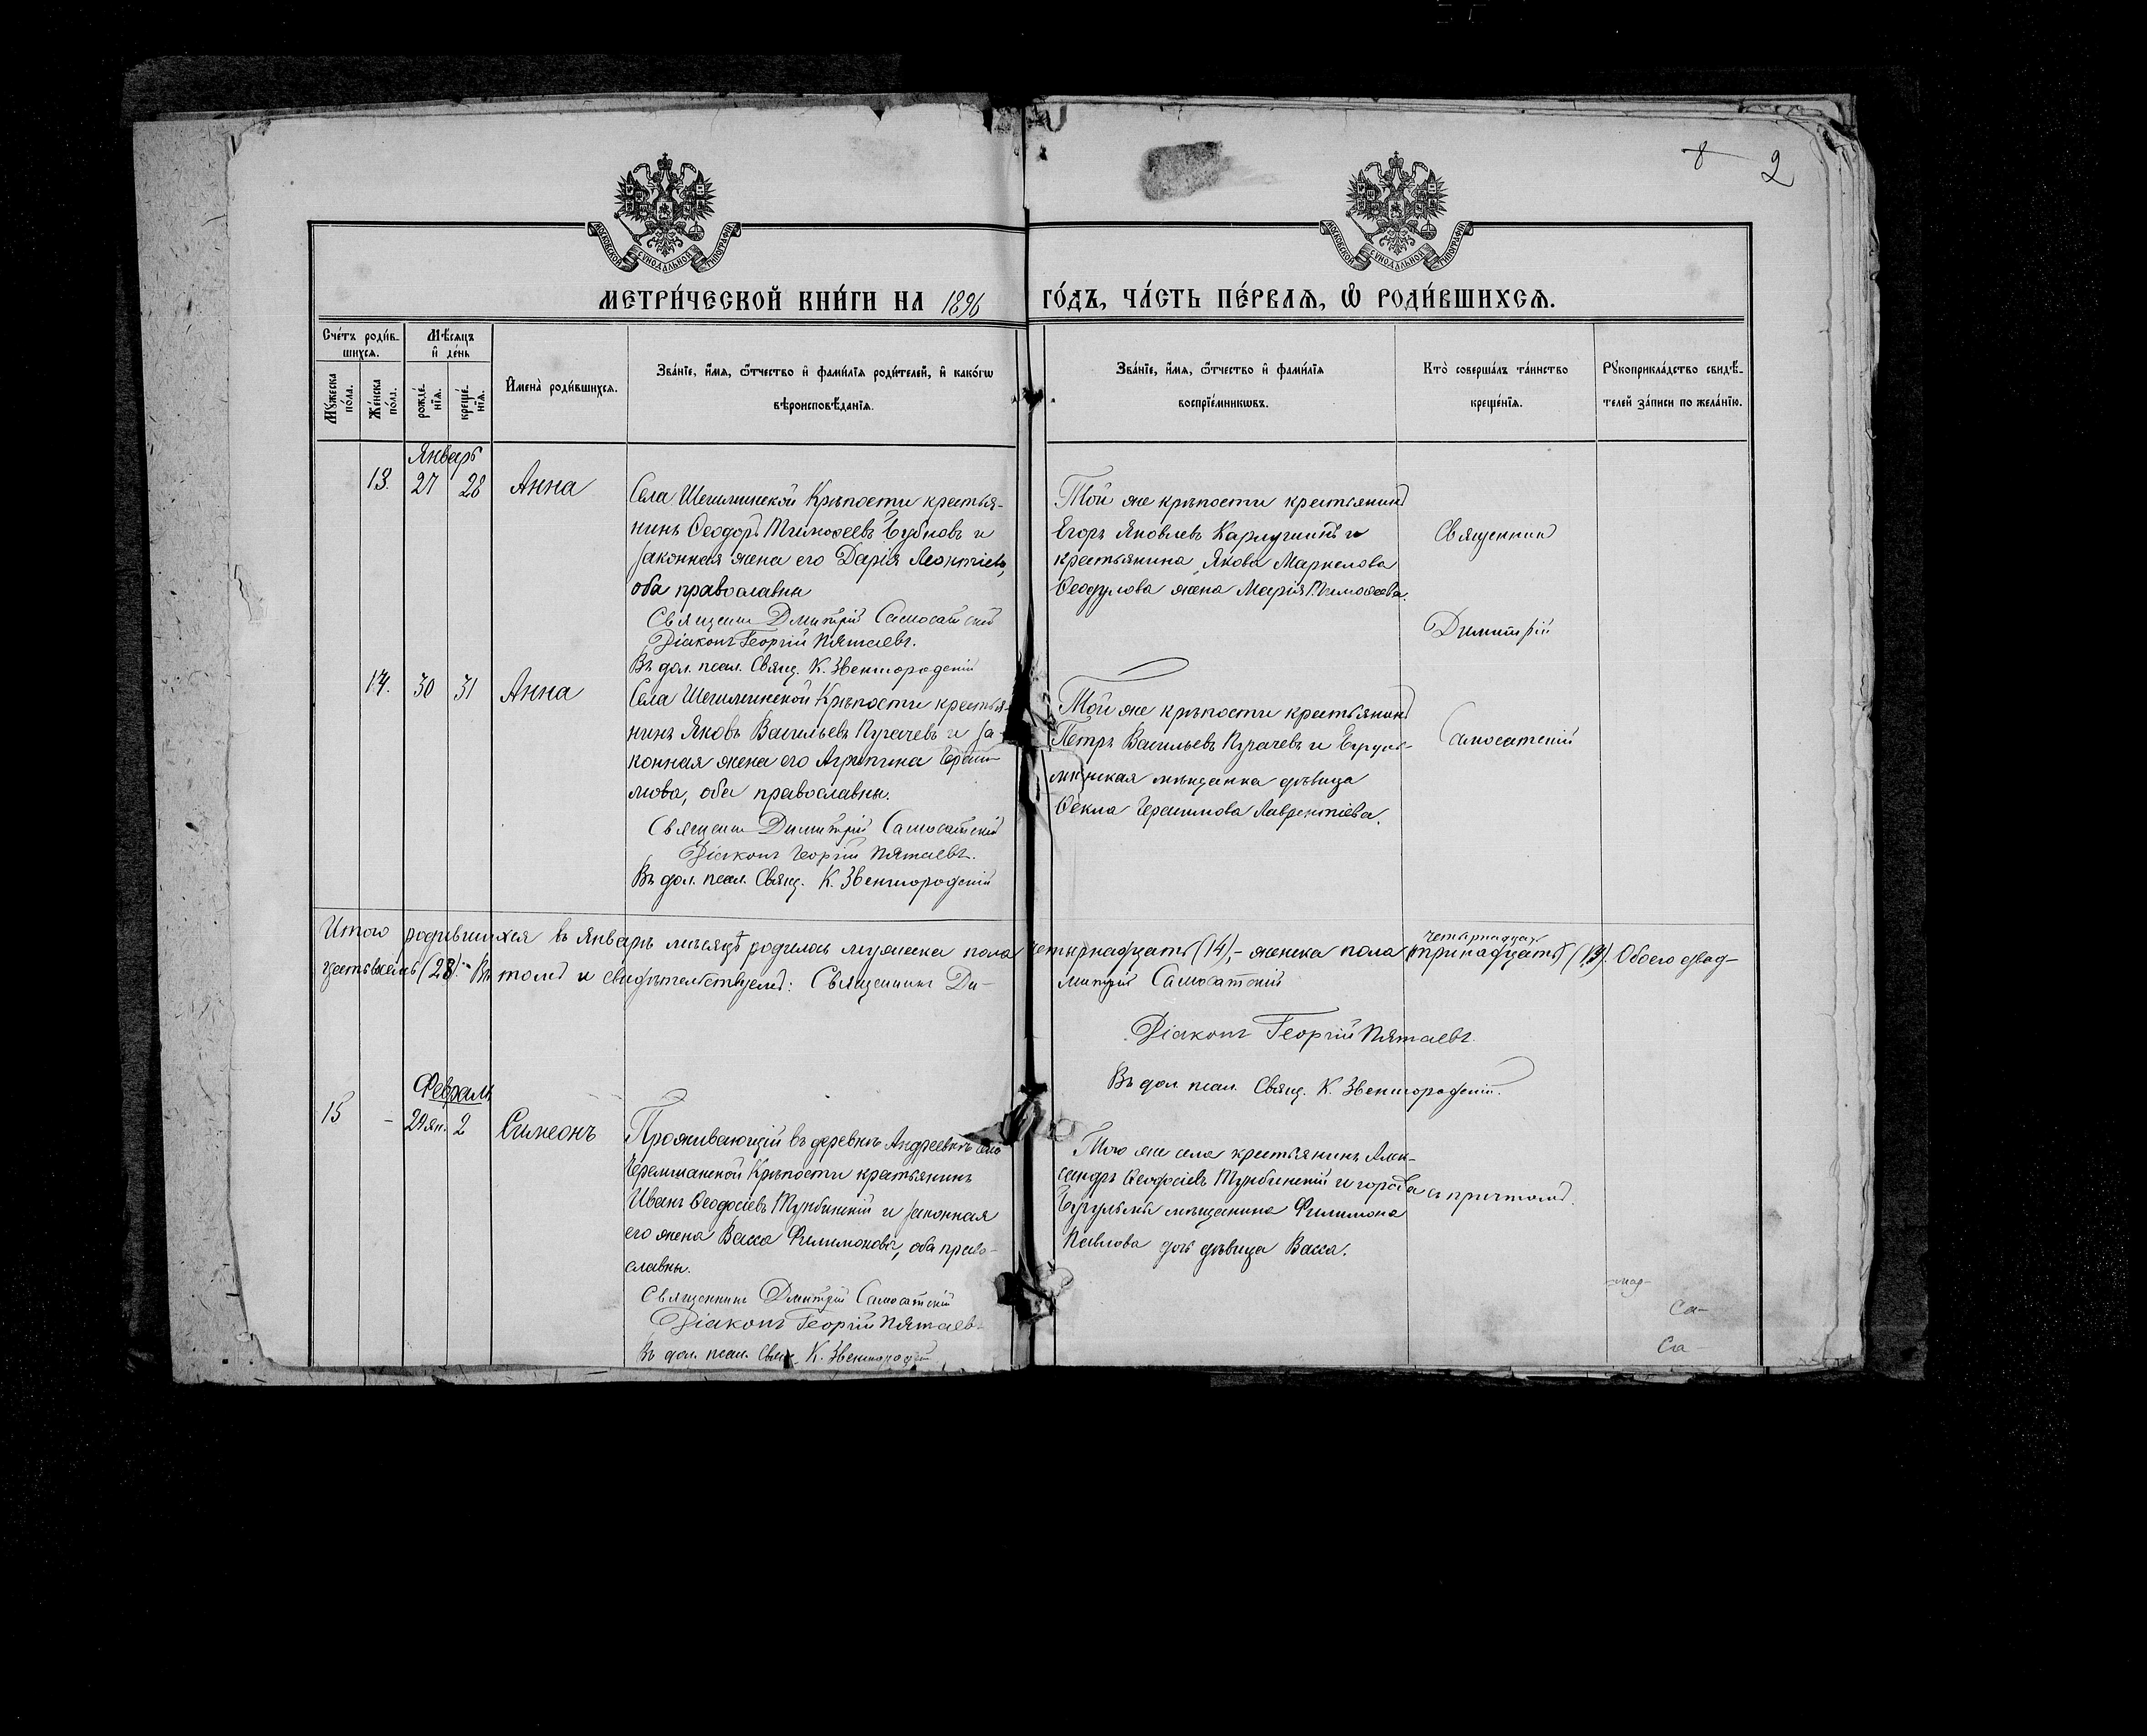 8 2
МОСКОВСКОЙ СѴНОДАЛЬНОЙ ТИПОГРАФІИ
МОСКОВСКОЙ СѴНОДАЛЬНОЙ ТИПОГРАФІИ
МЕТРИ́ЧЕСКОЙ КНИ́ГИ НА 1896 ГО́ДЪ, ЧА́СТЬ ПЕ́РВАѦ, Ѡ҆ РОДИ́ВШИХСѦ.
Сче́тъ роди́в-
шихсѧ.
Мꙋ́жеска по́ла.
Же́нска по́ла.
Мѣ́сѧцъ
и҆ де́нь
рожде́нїѧ.
креще́нїѧ.
И҆мена̀ роди́вшихсѧ.
Зва́нїе, и҆́мѧ, ѻ҆́тчество и҆ фами́лїѧ роди́телей, и҆ како́гѡ
вѣроисповѣ́данїѧ.
Зва́нїе, и҆́мѧ, ѻ҆́тчество и҆ фами́лїѧ
воспрїе́мникѡвъ.
Кто̀ соверша́лъ та́инство
креще́нїѧ.
Рꙋкоприкла́дство свидѣ́-
телей за́писи по жела́нїю.
Январь
13. 27 28 Анна
Села Шешминской Крѣпости крестья-
нинъ Ѳеодоръ Тимоѳеевъ Бубновъ и
законная жена его Дарія Леонтіева,
оба православны
Священн Димитрій Самосатскій
Діаконъ Георгій Пятаевъ.
Въ дол. псал. Свящ. К. Звенигородскій
Той же крѣпости крестьянинъ
Егоръ Яковлевъ и
крестьянина Якова Маркелова
Ѳеодулова жена Марія Тимоѳеева.
Священник
Димитрій
Самосатскій
съ причтомъ.
14. 30 31 Анна
Села Шешминской Крѣпости крестья-
нинъ Яковъ Васильевъ Пугачевъ и за-
конная жена его Агрипина Гераси-
мова, оба православны.
Священн Димитрій Самосатскій
Діаконъ Георгій Пятаевъ.
Въ дол. псал. Свящ. К. Звенигородскій
Той же крѣпости крестьянинъ
Петръ Васильевъ Пугачевъ и Бугуль-
минская мѣщанка дѣвица
Ѳекла Герасимова Лаврентіева.
Итого родившихся въ Январѣ мѣсяцѣ родилось мужеска пола четырнадцать (14), – женска пола тринадцать четырнадцать (14). Обоего двад-
цать восемь (28). Въ томъ и свидѣтельствуемъ: Священникъ Ди-
митрій Самосатскій
Діаконъ Георгій Пятаевъ.
Въ дол. псал. Свящ. К. Звенигородскій.
Февраль
15 – 29 ян. 2 Симеонъ
Проживающій въ деревнѣ Андреевкѣ села
Черемшанской Крѣпости крестьянинъ
Иванъ Ѳеодосіевъ Тумбинскій и законная
его жена Васса Филимонова, оба право-
славны.
Священникъ Димитрій Самосатскій
Діаконъ Георгій Пятаевъ
Въ дол. псал. Свящ. К. Звенигородскій
Того же села крестьянинъ Алек-
сандръ Ѳеодосіевъ Тумбинскій и города
Бугульмы мѣщанина Филимона
Павлова дочь дѣвица Васса.
Са-
Са-